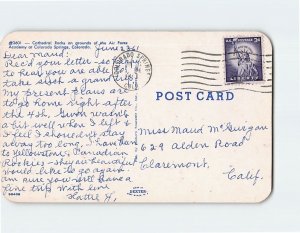 P3601 — Cathedral Rocks on grounds of the Air Force
Academy at Colorado Springs, Colorado.
June 23 61
Dear Maud:
Read your letter - so sorry
to hear you are able
take us on a grand
My present plans are
to go home right after
the 4th. Gwen wasn't
so hot well when I left &
I feel I shouldn't stay
away too long. I have been
to Yellowstone & Canadian
Rockies - they are beautiful
would like to go again.
am sure you will have a
fine trip with
Hattie H,
COLORADO SPRINGS
U.S. POSTAGE 3¢
LIBERTY
POST CARD
Miss Maud McGuigan
629 Alden Road
Claremont,
Calif.
DEXTER